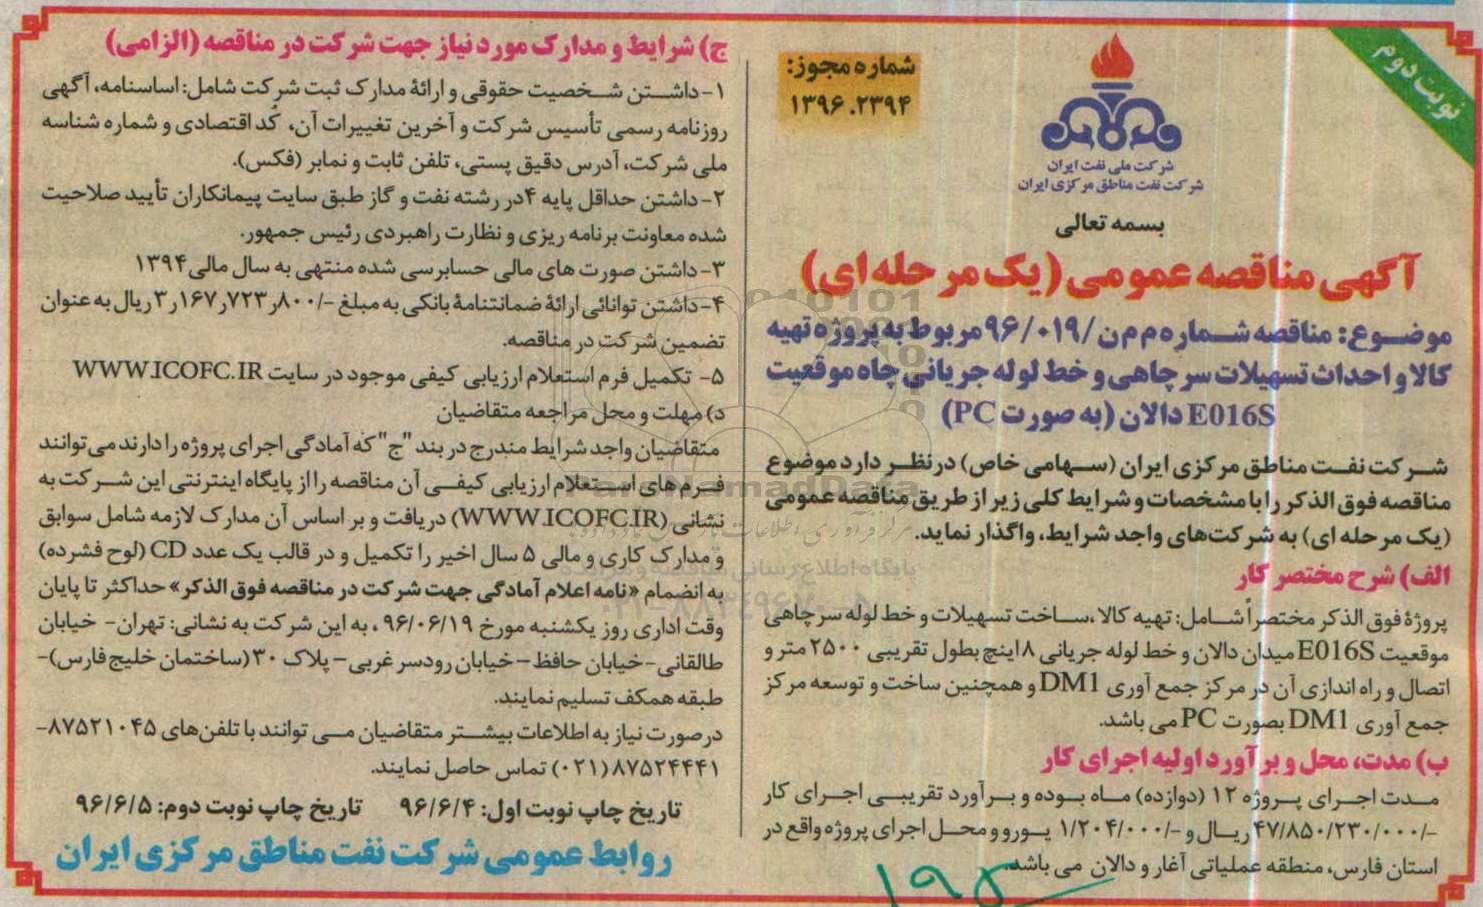 نوبت دوم
شماره مجوز:
۱۳۹۶.۲۳۹۴
شرکت ملی نفت ایران
شرکت نفت مناطق مرکزی ایران
بسمه تعالی
آگهی مناقصه عمومی (یک مرحله ای)
موضوع: مناقصه شماره م م ن/۹۶/۰۱۹ مربوط به پروژه تهیه
کالا و احداث تسهیلات سر چاهی و خط لوله جریانی چاه موقعیت
E016S دالان (به صورت PC)
شرکت نفت مناطق مرکزی ایران (سهامی خاص) در نظر دارد موضوع
مناقصه فوق الذکر را با مشخصات و شرایط کلی زیر از طریق مناقصه عمومی
(یک مرحله ای) به شرکت‌های واجد شرایط، واگذار نماید.
الف) شرح مختصر کار
پروژهٔ فوق الذکر مختصراً شامل: تهیه کالا ،ساخت تسهیلات و خط لوله سر چاهی
موقعیت E016S میدان دالان و خط لوله جریانی ۸ اینچ بطول تقریبی ۲۵۰۰ متر و
اتصال و راه اندازی آن در مرکز جمع آوری DM1 و همچنین ساخت و توسعه مرکز
جمع آوری DM1 بصورت PC می باشد.
ب) مدت، محل و بر آورد اولیه اجرای کار
مدت اجرای پروژه ۱۲ (دوازده) ماه بوده و برآورد تقریبی اجرای کار
-/۴۷/۸۵۰/۲۳۰/۰۰۰ ریال و -/۱/۲۰۴/۰۰۰ یورو و محل اجرای پروژه واقع در
استان فارس، منطقه عملیاتی آغار و دالان می باشد.
۱۹۵
ج) شرایط و مدارک مورد نیاز جهت شرکت در مناقصه (الزامی)
۱- داشتن شخصیت حقوقی و ارائهٔ مدارک ثبت شرکت شامل: اساسنامه، آگهی
روزنامه رسمی تأسیس شرکت و آخرین تغییرات آن، کُد اقتصادی و شماره شناسه
ملی شرکت، آدرس دقیق پستی، تلفن ثابت و نمابر (فکس).
۲- داشتن حداقل پایه ۴ در رشته نفت و گاز طبق سایت پیمانکاران تأیید صلاحیت
شده معاونت برنامه ریزی و نظارت راهبردی رئیس جمهور.
۳- داشتن صورت های مالی حسابرسی شده منتهی به سال مالی ۱۳۹۴
۴- داشتن توانائی ارائهٔ ضمانتنامهٔ بانکی به مبلغ -/۳ر۱۶۷ر۷۲۳ر۸۰۰ ریال به عنوان
تضمین شرکت در مناقصه.
۵- تکمیل فرم استعلام ارزیابی کیفی موجود در سایت WWW.ICOFC.IR
د) مهلت و محل مراجعه متقاضیان
متقاضیان واجد شرایط مندرج در بند "ج" که آمادگی اجرای پروژه را دارند می توانند
فرم های استعلام ارزیابی کیفی آن مناقصه را از پایگاه اینترنتی این شرکت به
نشانی (WWW.ICOFC.IR) دریافت و بر اساس آن مدارک لازمه شامل سوابق
و مدارک کاری و مالی ۵ سال اخیر را تکمیل و در قالب یک عدد CD (لوح فشرده)
به انضمام «نامه اعلام آمادگی جهت شرکت در مناقصه فوق الذکر» حداکثر تا پایان
وقت اداری روز یکشنبه مورخ ۹۶/۰۶/۱۹ ، به این شرکت به نشانی: تهران- خیابان
طالقانی- خیابان حافظ - خیابان رودسر غربی- پلاک ۳۰ (ساختمان خلیج فارس)-
طبقه همکف تسلیم نمایند.
در صورت نیاز به اطلاعات بیشتر متقاضیان می توانند با تلفن‌های ۸۷۵۲۱۰۴۵-
۸۷۵۲۴۴۴۱ (۰۲۱) تماس حاصل نمایند.
تاریخ چاپ نوبت اول: ۹۶/۶/۴ تاریخ چاپ نوبت دوم: ۹۶/۶/۵
روابط عمومی شرکت نفت مناطق مرکزی ایران